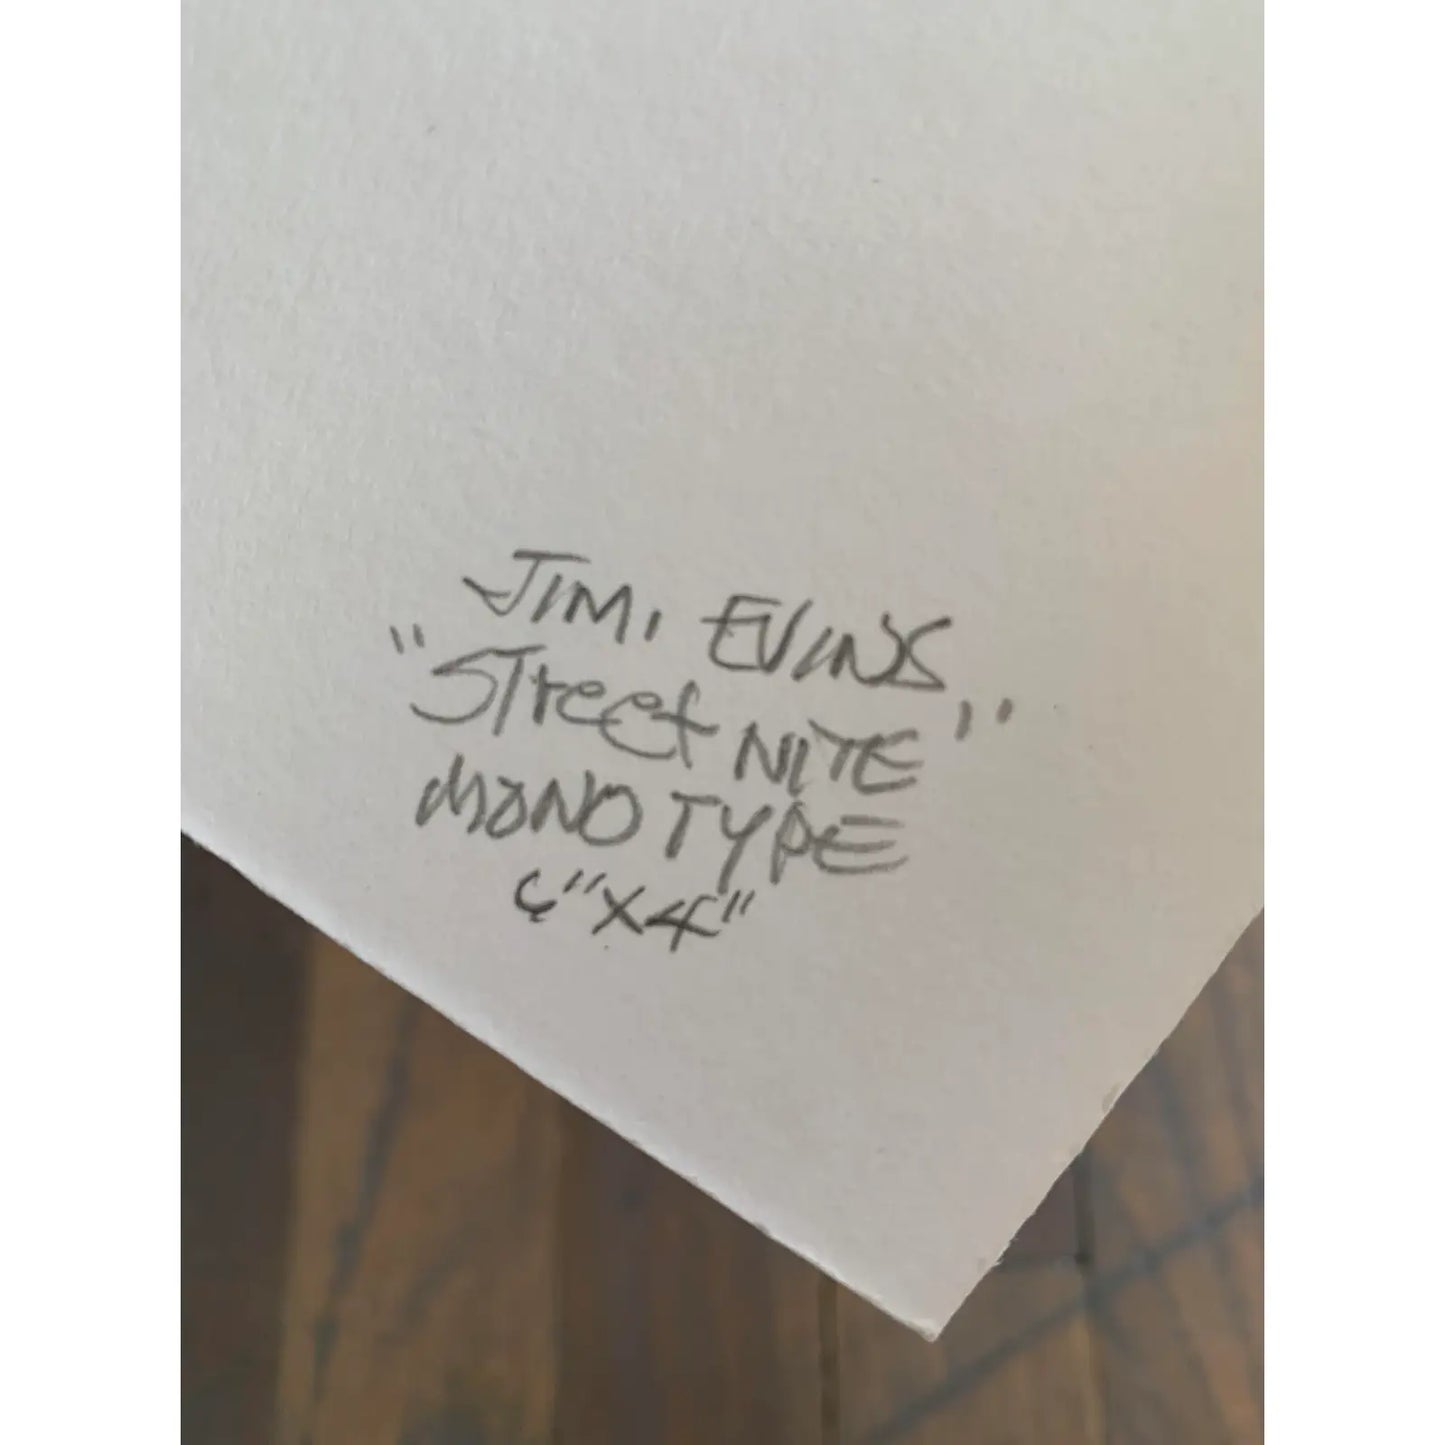 JIMI EVINS
"STreet NITE"
MONOTYPE
6"X4"